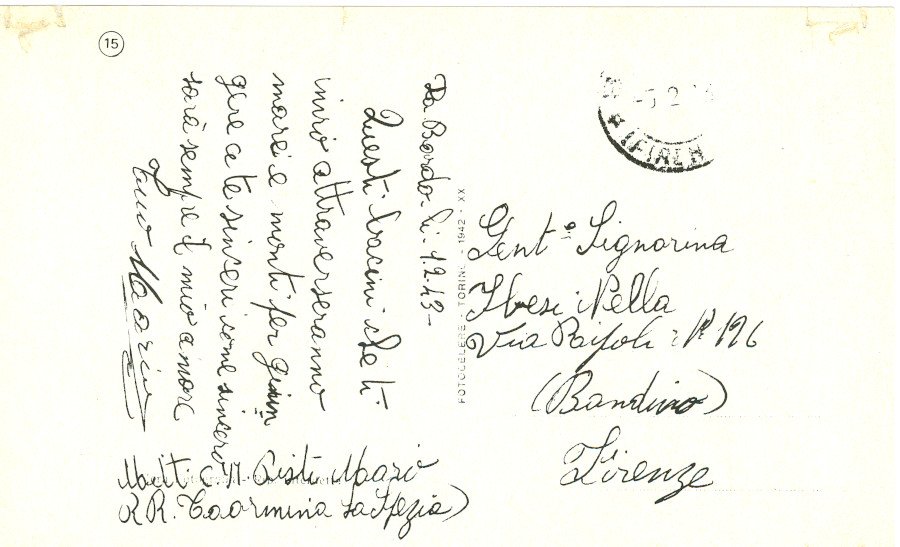 15
Da Bordo li. 1.2.43-
Questi bacini che ti
invio attraverseranno
mari e monti per giun
gere a te sinceri come sincero
sarà sempre il mio amore
Tuo Mario
Mario
R.R. Taormina La Spezia)
FOTOCELERE - TORINO - 1942 - XX
FIREN
Gent. Signorina
Nella
Via Ripoli N 126
(Bandino)
Firenze